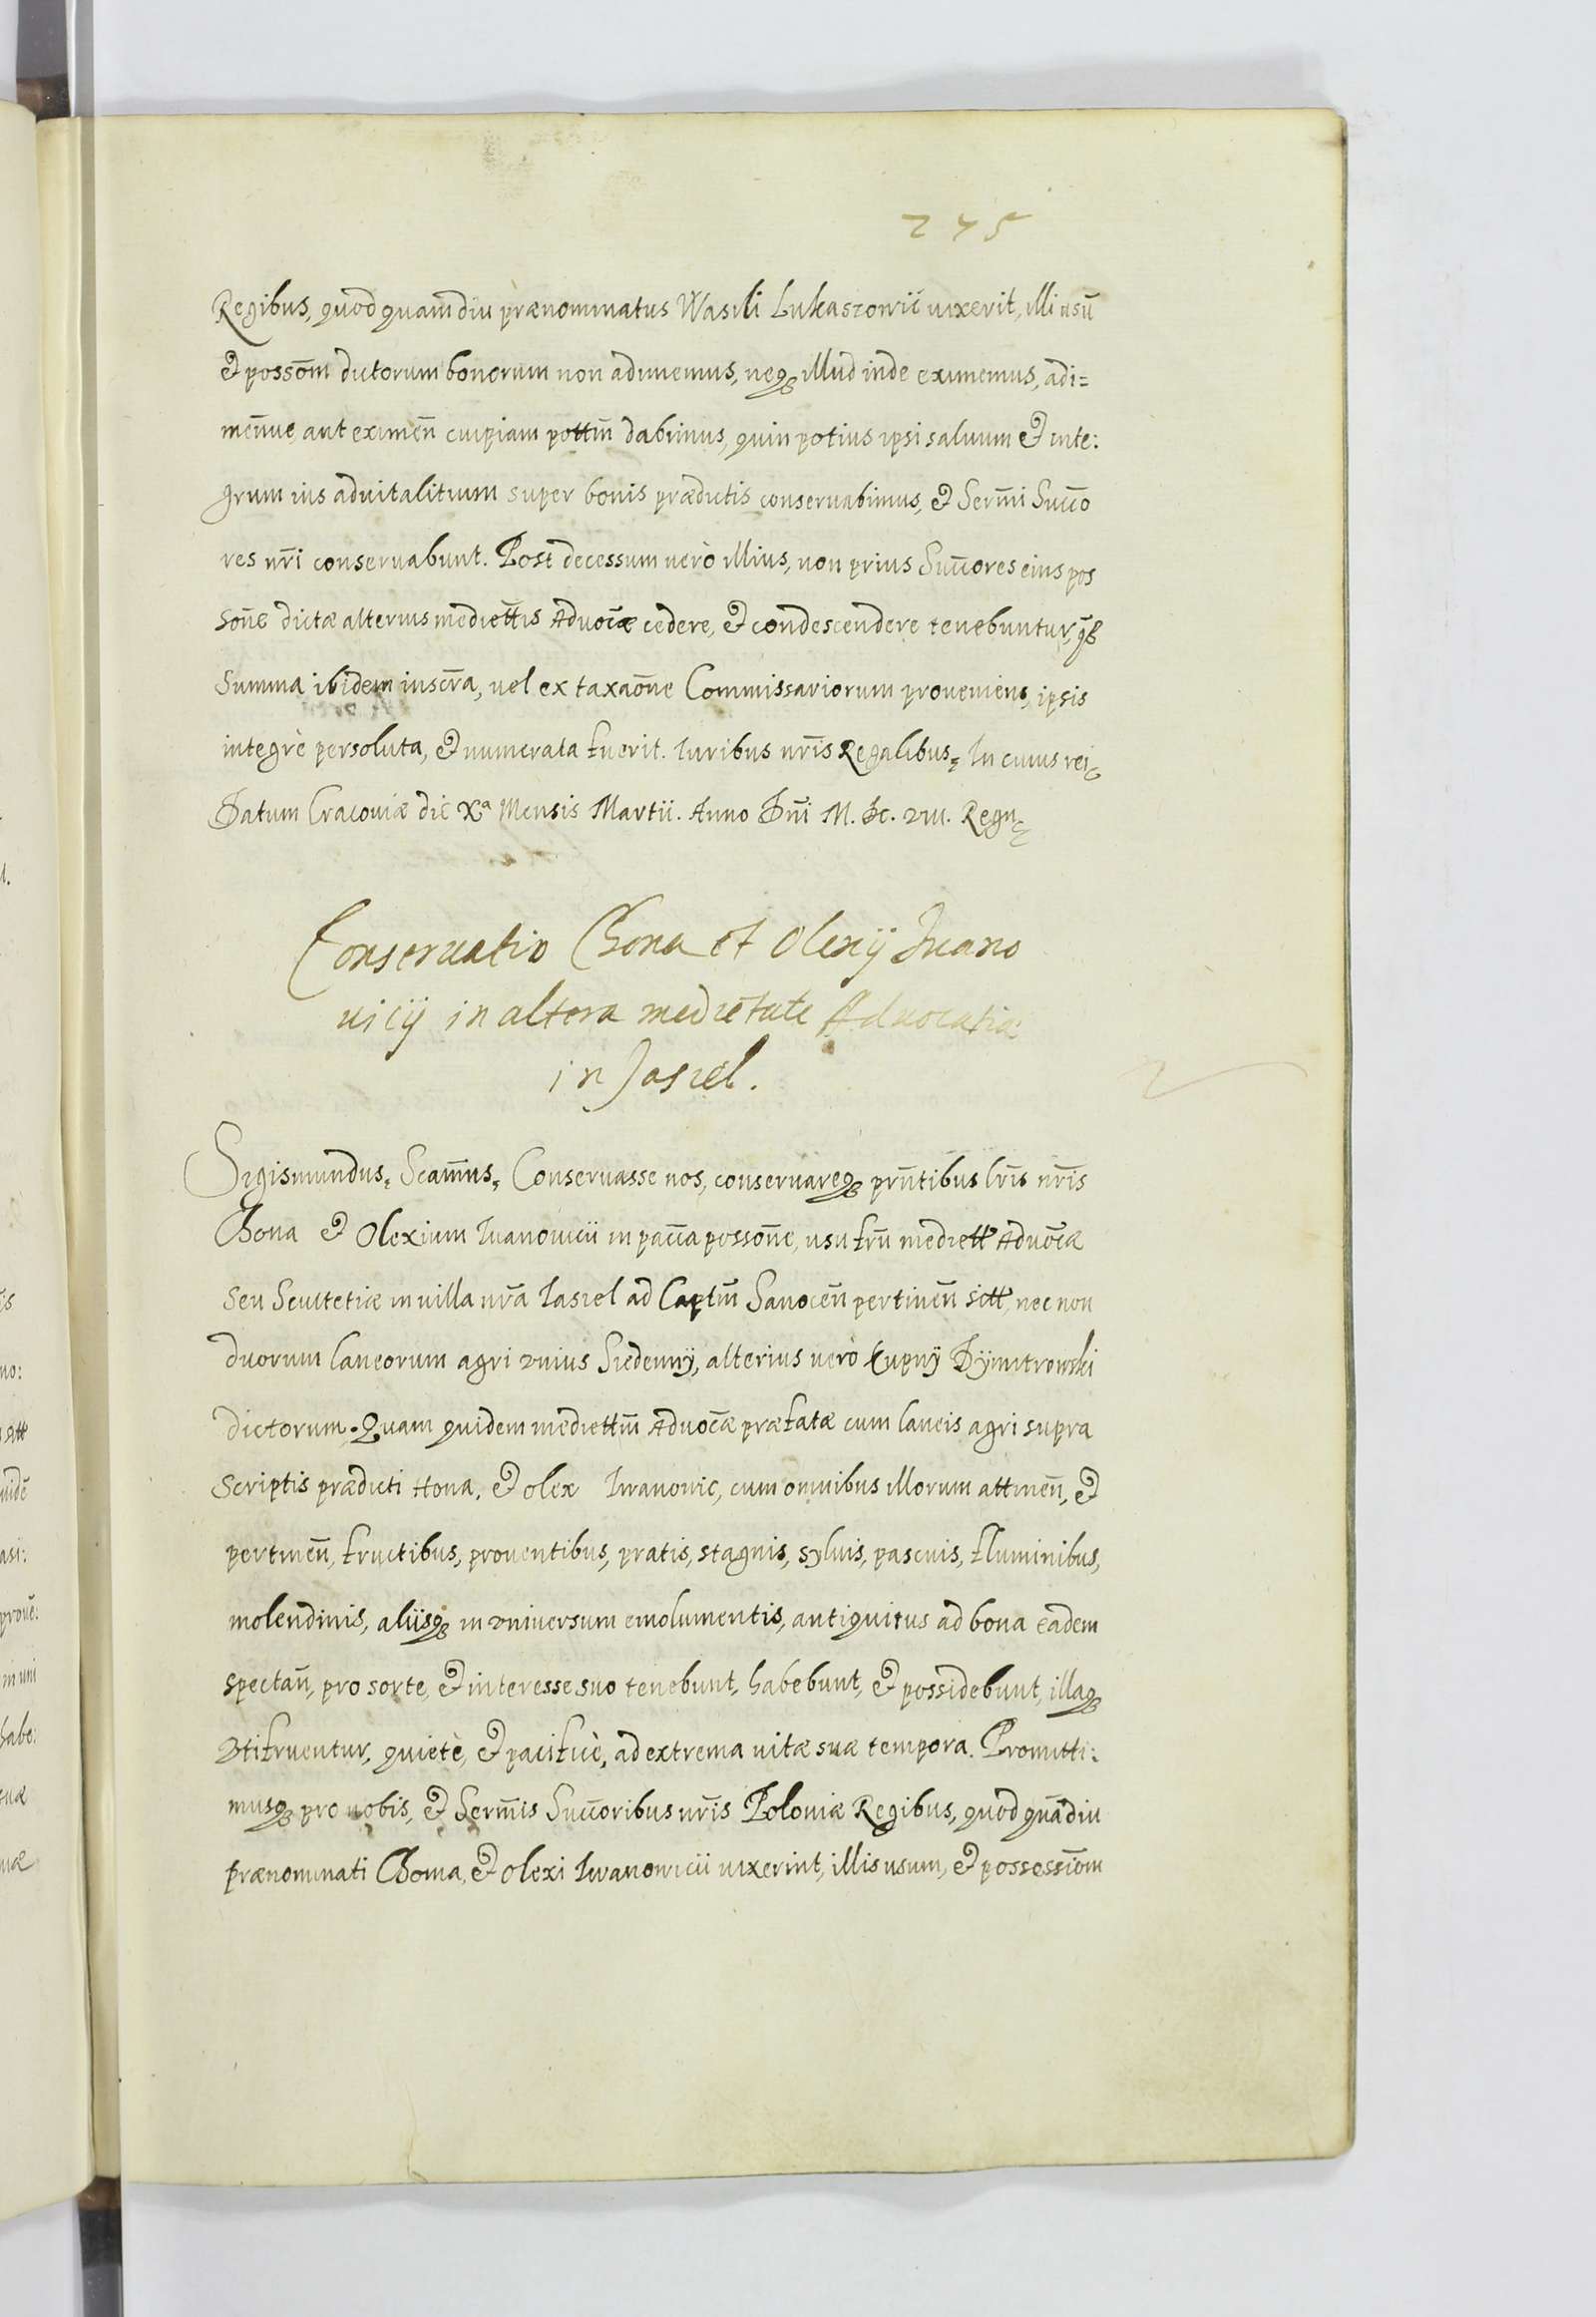 245
Regibus, quod quam diu prænominatus Wasili Lukaszowic uixerit, illi usū
et possōm dictorum bonorum non adimemus, neqꝫ illud inde eximemus, adi=
mēnue, aut eximēn cuipiam pottm̄ dabimus, quin potius ipsi saluum et inte:
grum ius aduitalitium super bonis prædictis conseruabimus, et Serm̄i Succo
res nr̄i conseruabunt. Post decessum uerò illius, non prius Succores eius pos
son̄e dictæ alterius mediettis Aduocæ cedere, et condescendere tenebuntur, qꝫ
Summa ibidem inscr̄a, uel ex taxaōne Commissariorum proueniens, ipsis
integrè persoluta, et numerata fuerit. Iuribus nr̄is Regalibus, In cuius rei
Datum Cracouiæ die Xª Mensis Martii. Anno Dn̄i M. Dc. viii. Regn
Conseruatio Chona et Olexij Iuano
uicij in altera medietate Aduocatiæ
in Jasiel.
Sigismundus, Scam̄us, Conseruasse nos, conseruareqꝫ pr̄ntibus lr̄is nr̄is
Chona et Olexium Iuanouicii in pacca posson̄e, usufrū mediett Aduocæ
seu Scultetiæ in uilla nr̄a Iasiel ad Captm̄ Sanocēn pertinēn sitt, nec non
duorum laneorum agri vnius Siedenny, alterius uerò Lupny Dymitrowski
dictorum. Quam quidem mediettm̄ Aduocæ præfatæ cum laneis agri supra
scriptis prædicti Hona, et olex Iwanowic, cum omnibus illorum attinēn, et
pertinēn, fructibus, prouentibus, pratis, stagnis, syluis, pascuis, fluminibus,
molendinis, aliisqꝫ in vniuersum emolumentis, antiquitus ad bona eadem
spectān, pro sorte, et interesse suo tenebunt, habebunt, et possidebunt, illaqꝫ
vtifruentur, quietè, et pacificè, ad extrema uitæ suæ tempora. Promitti:
musqꝫ pro nobis, et Serm̄is Succoribus nr̄is Poloniæ Regibus, quod quādiu
prænominati Choma, et olexi Iwanowicii uixerint, illis usum, et possessiōm